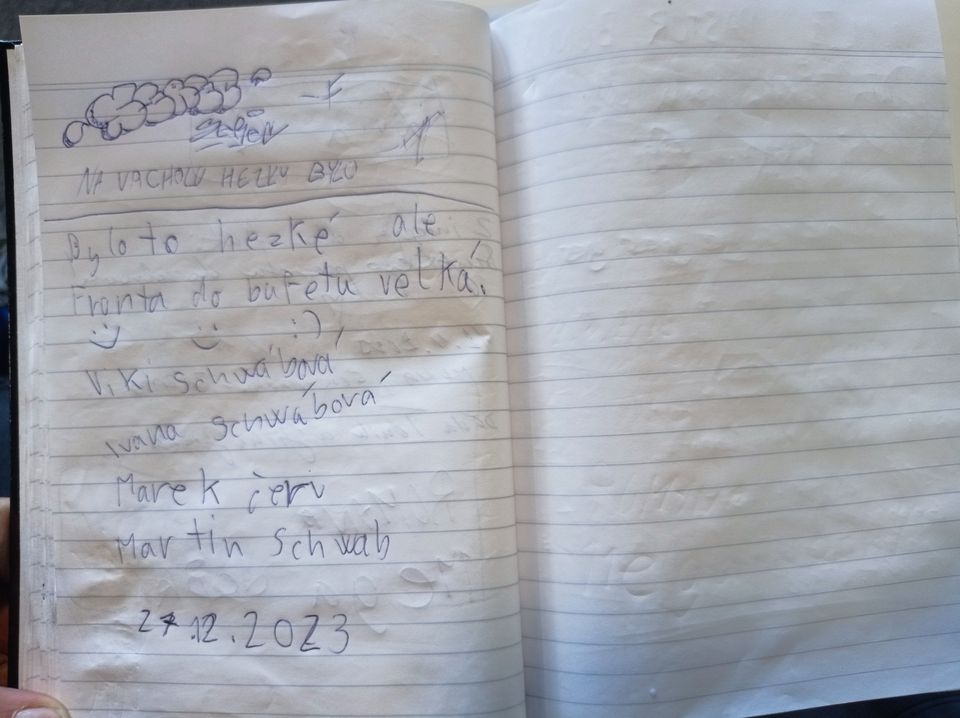 NA VACHOLU HEZKY BYLO
Bylo to hezké ale
Fronta do bufetu velká.
:) :) :)
Viki Schwábová
Ivana Schwábová
Marek
Martin Schwab
27.12.2023